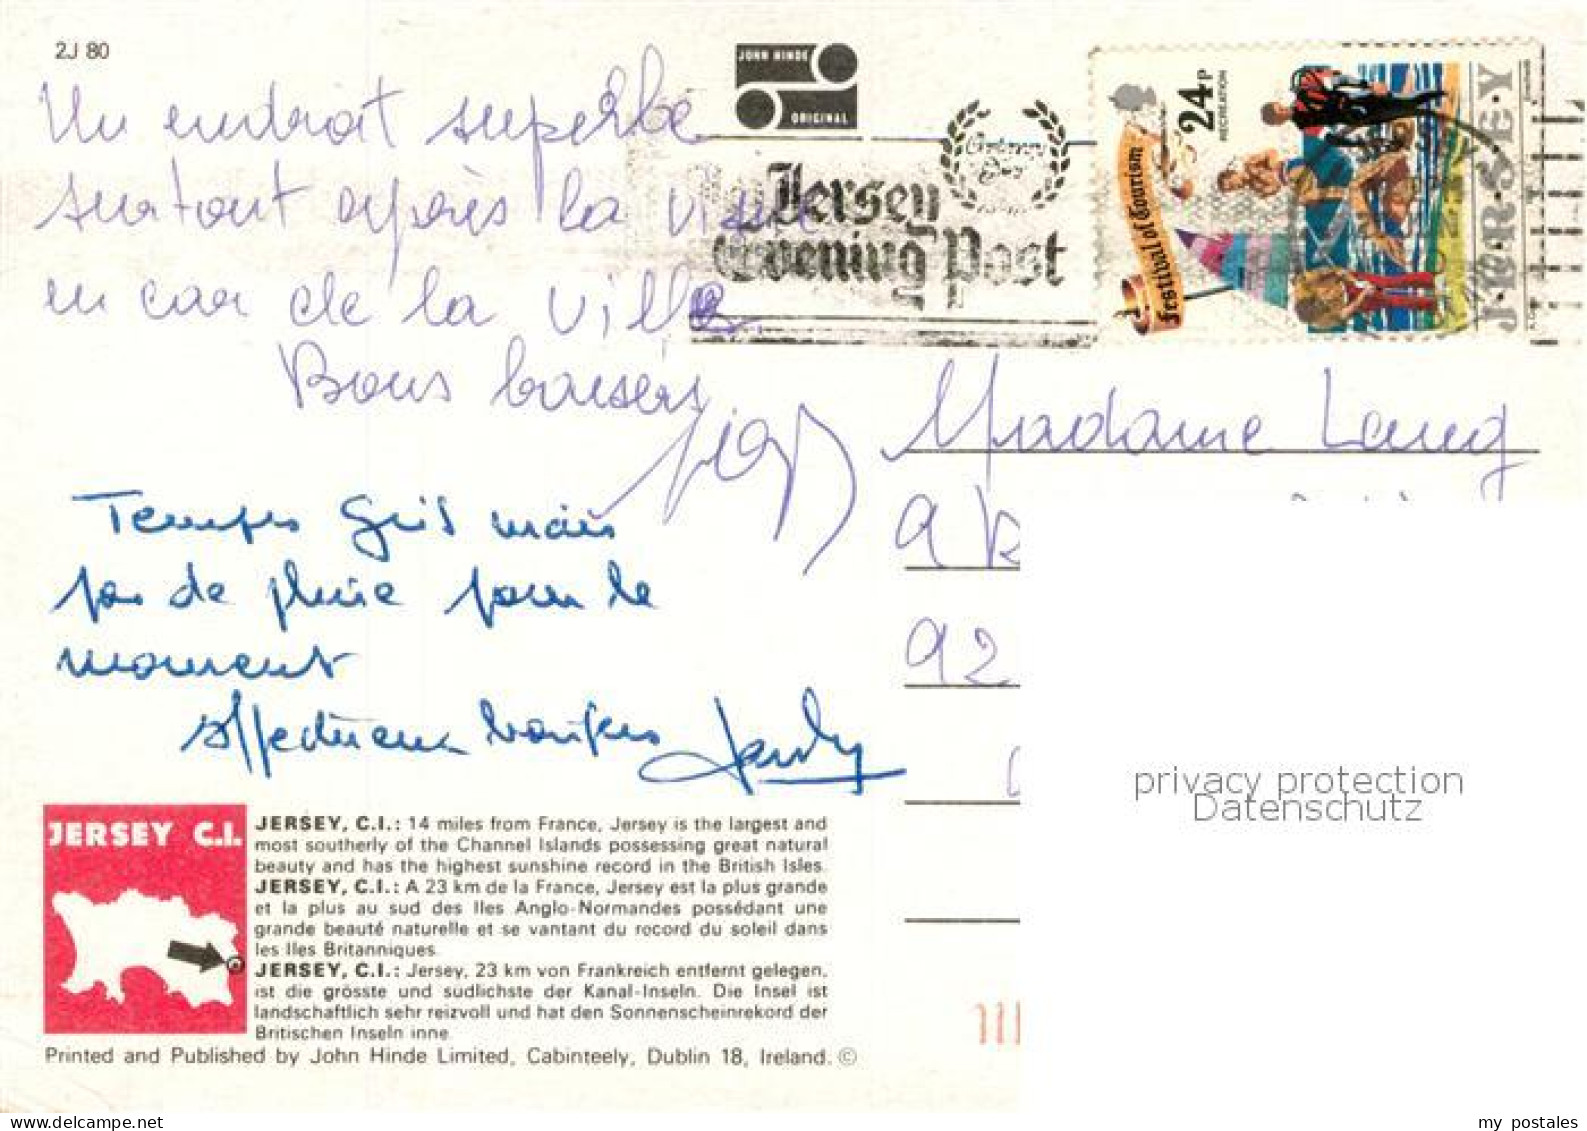 2J 80
JOHN HINDE
ORIGINAL
Un endroit superbe
surtout après la visite
en car de la ville
Bons baisers
Jersey
Evening Post
Festival of Tourism
24P
RECREATION
J·E·R·S·E·Y
Madame Lang
9
92
Temps gris mais
pas de pluie pour le
moment
affectueux baisers
privacy protection
Datenschutz
JERSEY C.I.
JERSEY, C.I.: 14 miles from France, Jersey is the largest and
most southerly of the Channel Islands possessing great natural
beauty and has the highest sunshine record in the British Isles.
JERSEY, C.I.: A 23 km de la France, Jersey est la plus grande
et la plus au sud des Iles Anglo-Normandes possédant une
grande beauté naturelle et se vantant du record du soleil dans
les Iles Britanniques.
JERSEY, C.I.: Jersey, 23 km von Frankreich entfernt gelegen,
ist die grösste und sudlichste der Kanal-Inseln. Die Insel ist
landschaftlich sehr reizvoll und hat den Sonnenscheinrekord der
Britischen Inseln inne.
Printed and Published by John Hinde Limited, Cabinteely, Dublin 18, Ireland. ©
my postales